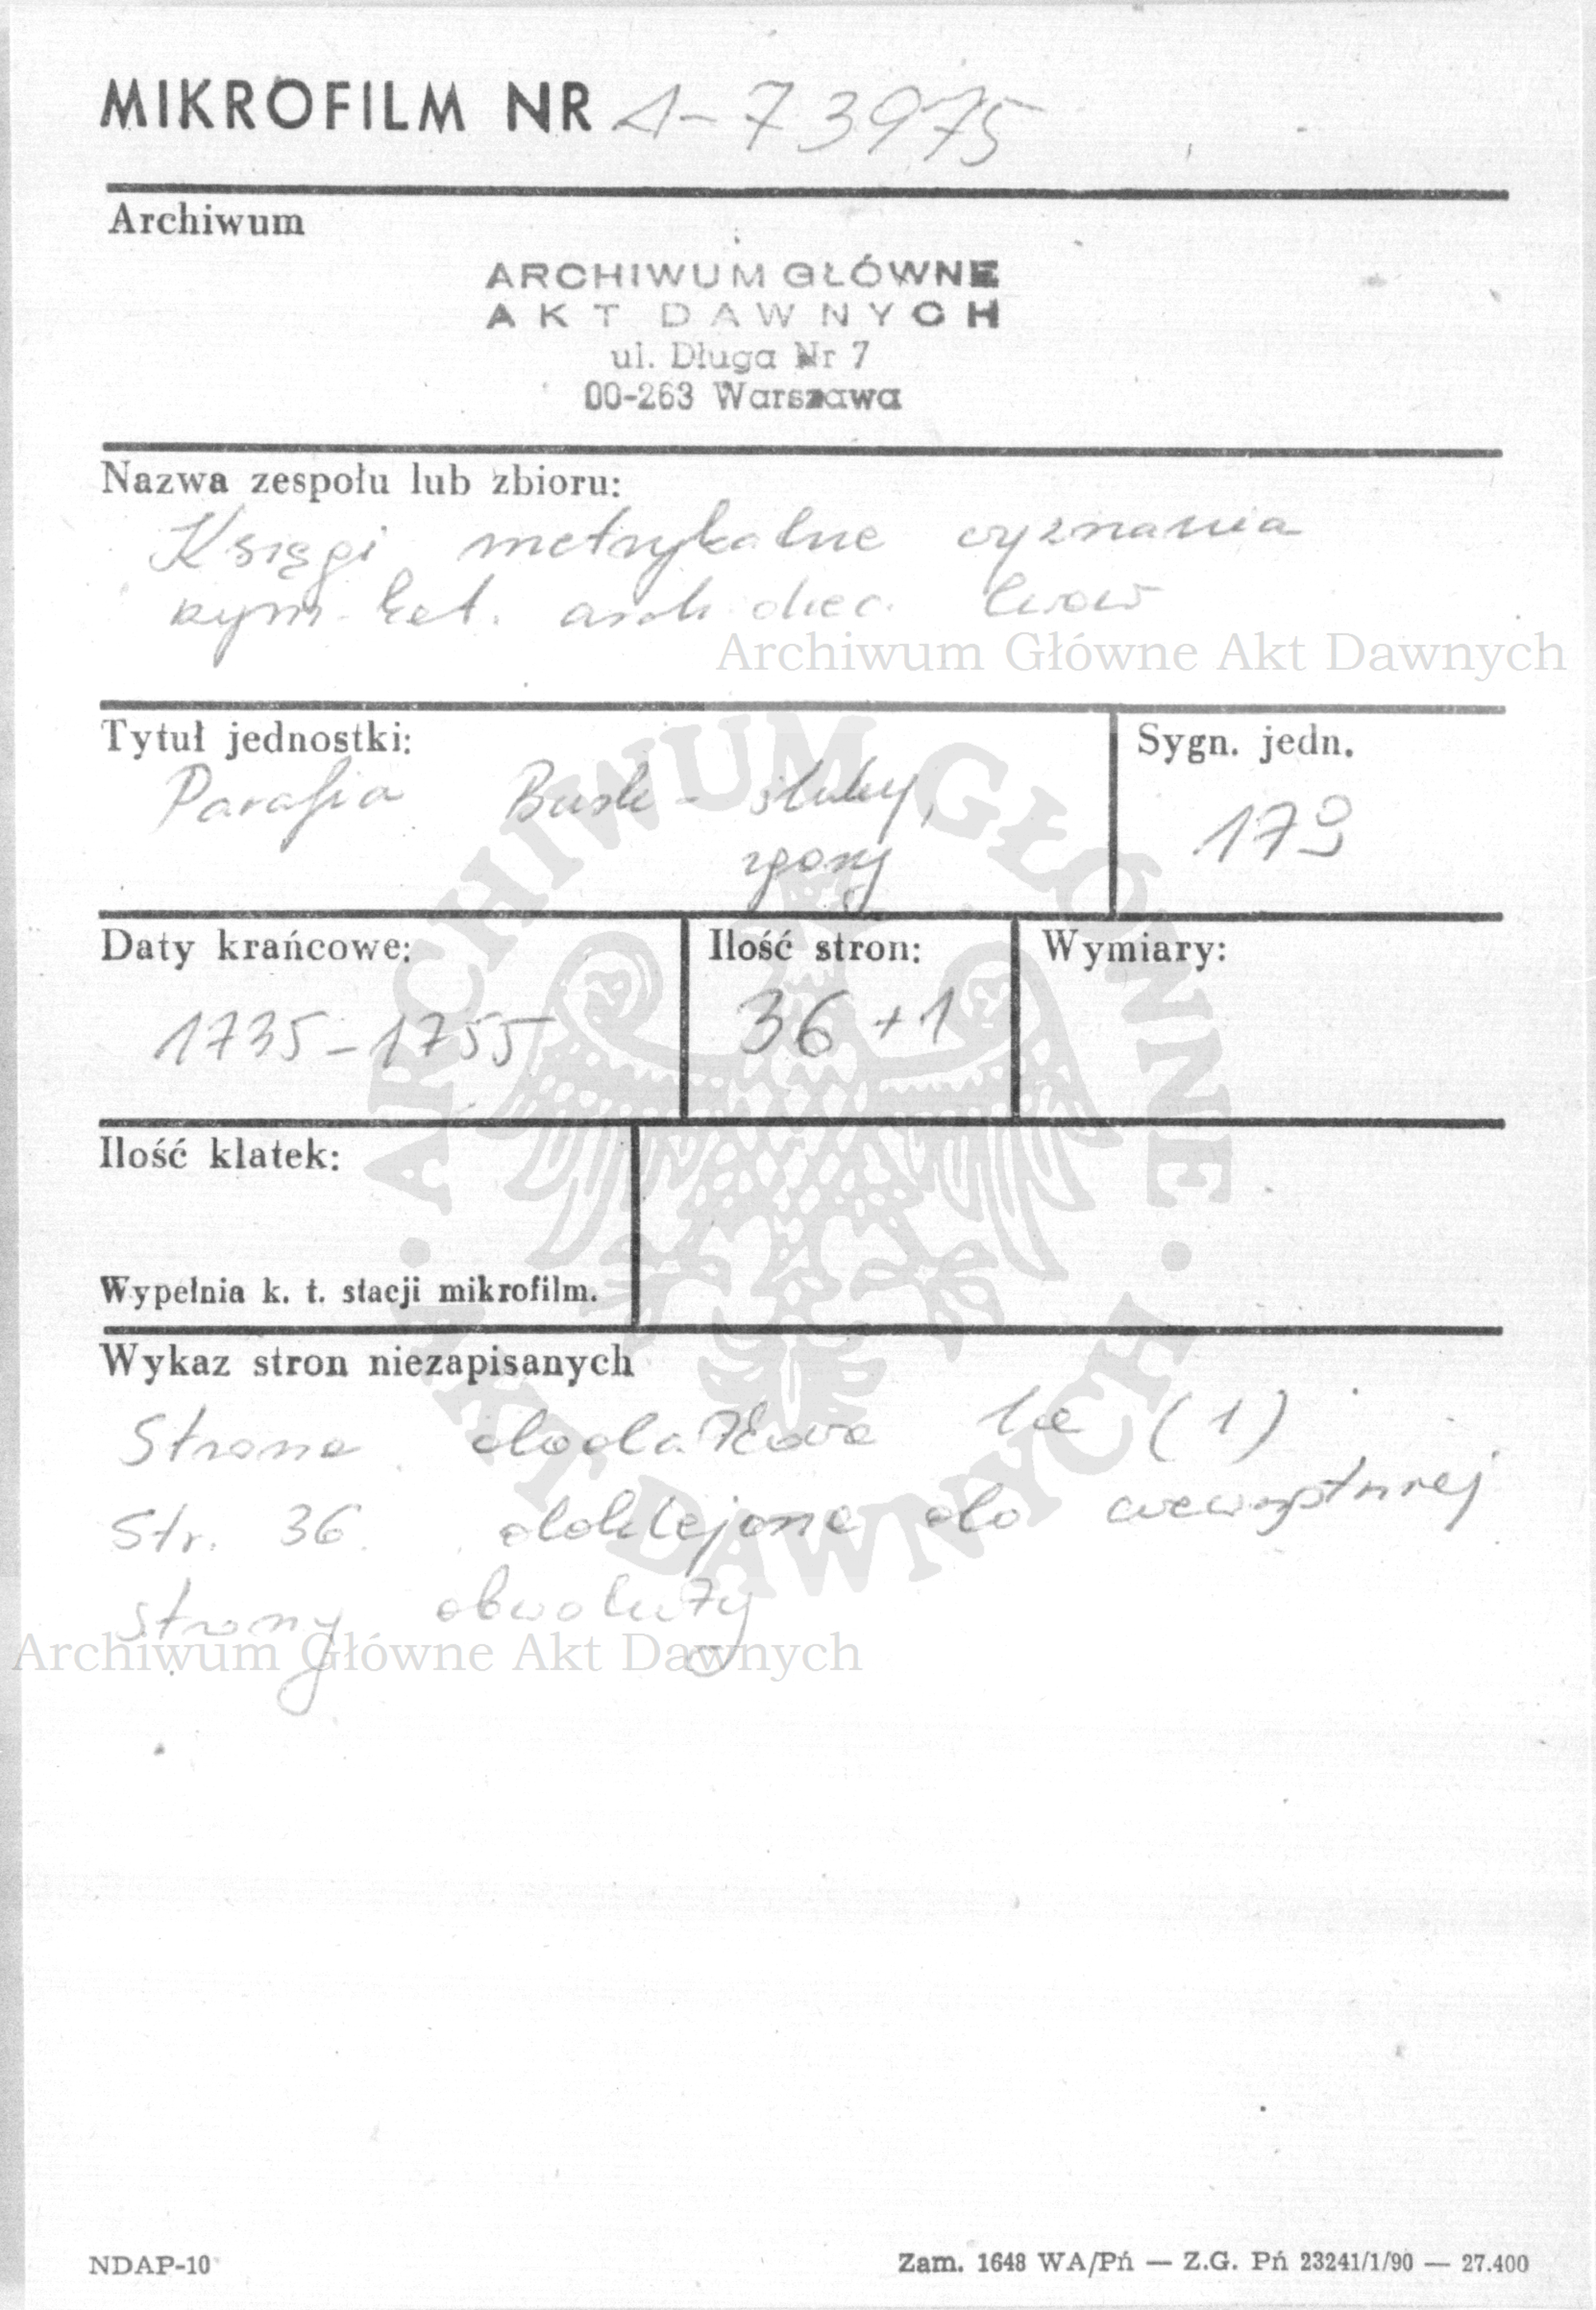 MIKROFILM NR A-73975
Archiwum
ARCHIWUM GŁÓWNE
AKT DAWNYCH
ul. Długa Nr 7
00-263 Warszawa
Nazwa zespołu lub zbioru:
Księgi metrykalne wyznania
rzym. kat. archidiec. Lwów
Archiwum Główne Akt Dawnych
Tytuł jednostki:
Parafia Busk - śluby,
zgony
Sygn. jedn.
179
Daty krańcowe:
1735-1755
Ilość stron:
36+1
Wymiary:
Ilość klatek:
Wypełnia k. t. stacji mikrofilm.
ARCHIWUM GŁÓWNE · AKT DAWNYCH ·
Wykaz stron niezapisanych
Strona dodatkowa 1a (1)
Str. 36 doklejona do wewnętrznej
strony obwoluty
Archiwum Główne Akt Dawnych
NDAP-10
Zam. 1648 WA/Pń — Z.G. Pń 23241/1/90 — 27.400